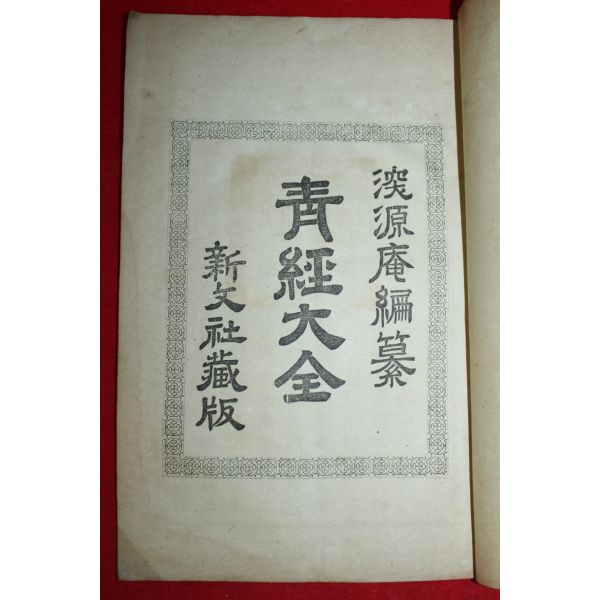 深源庵編纂
青經大全
新文社藏版